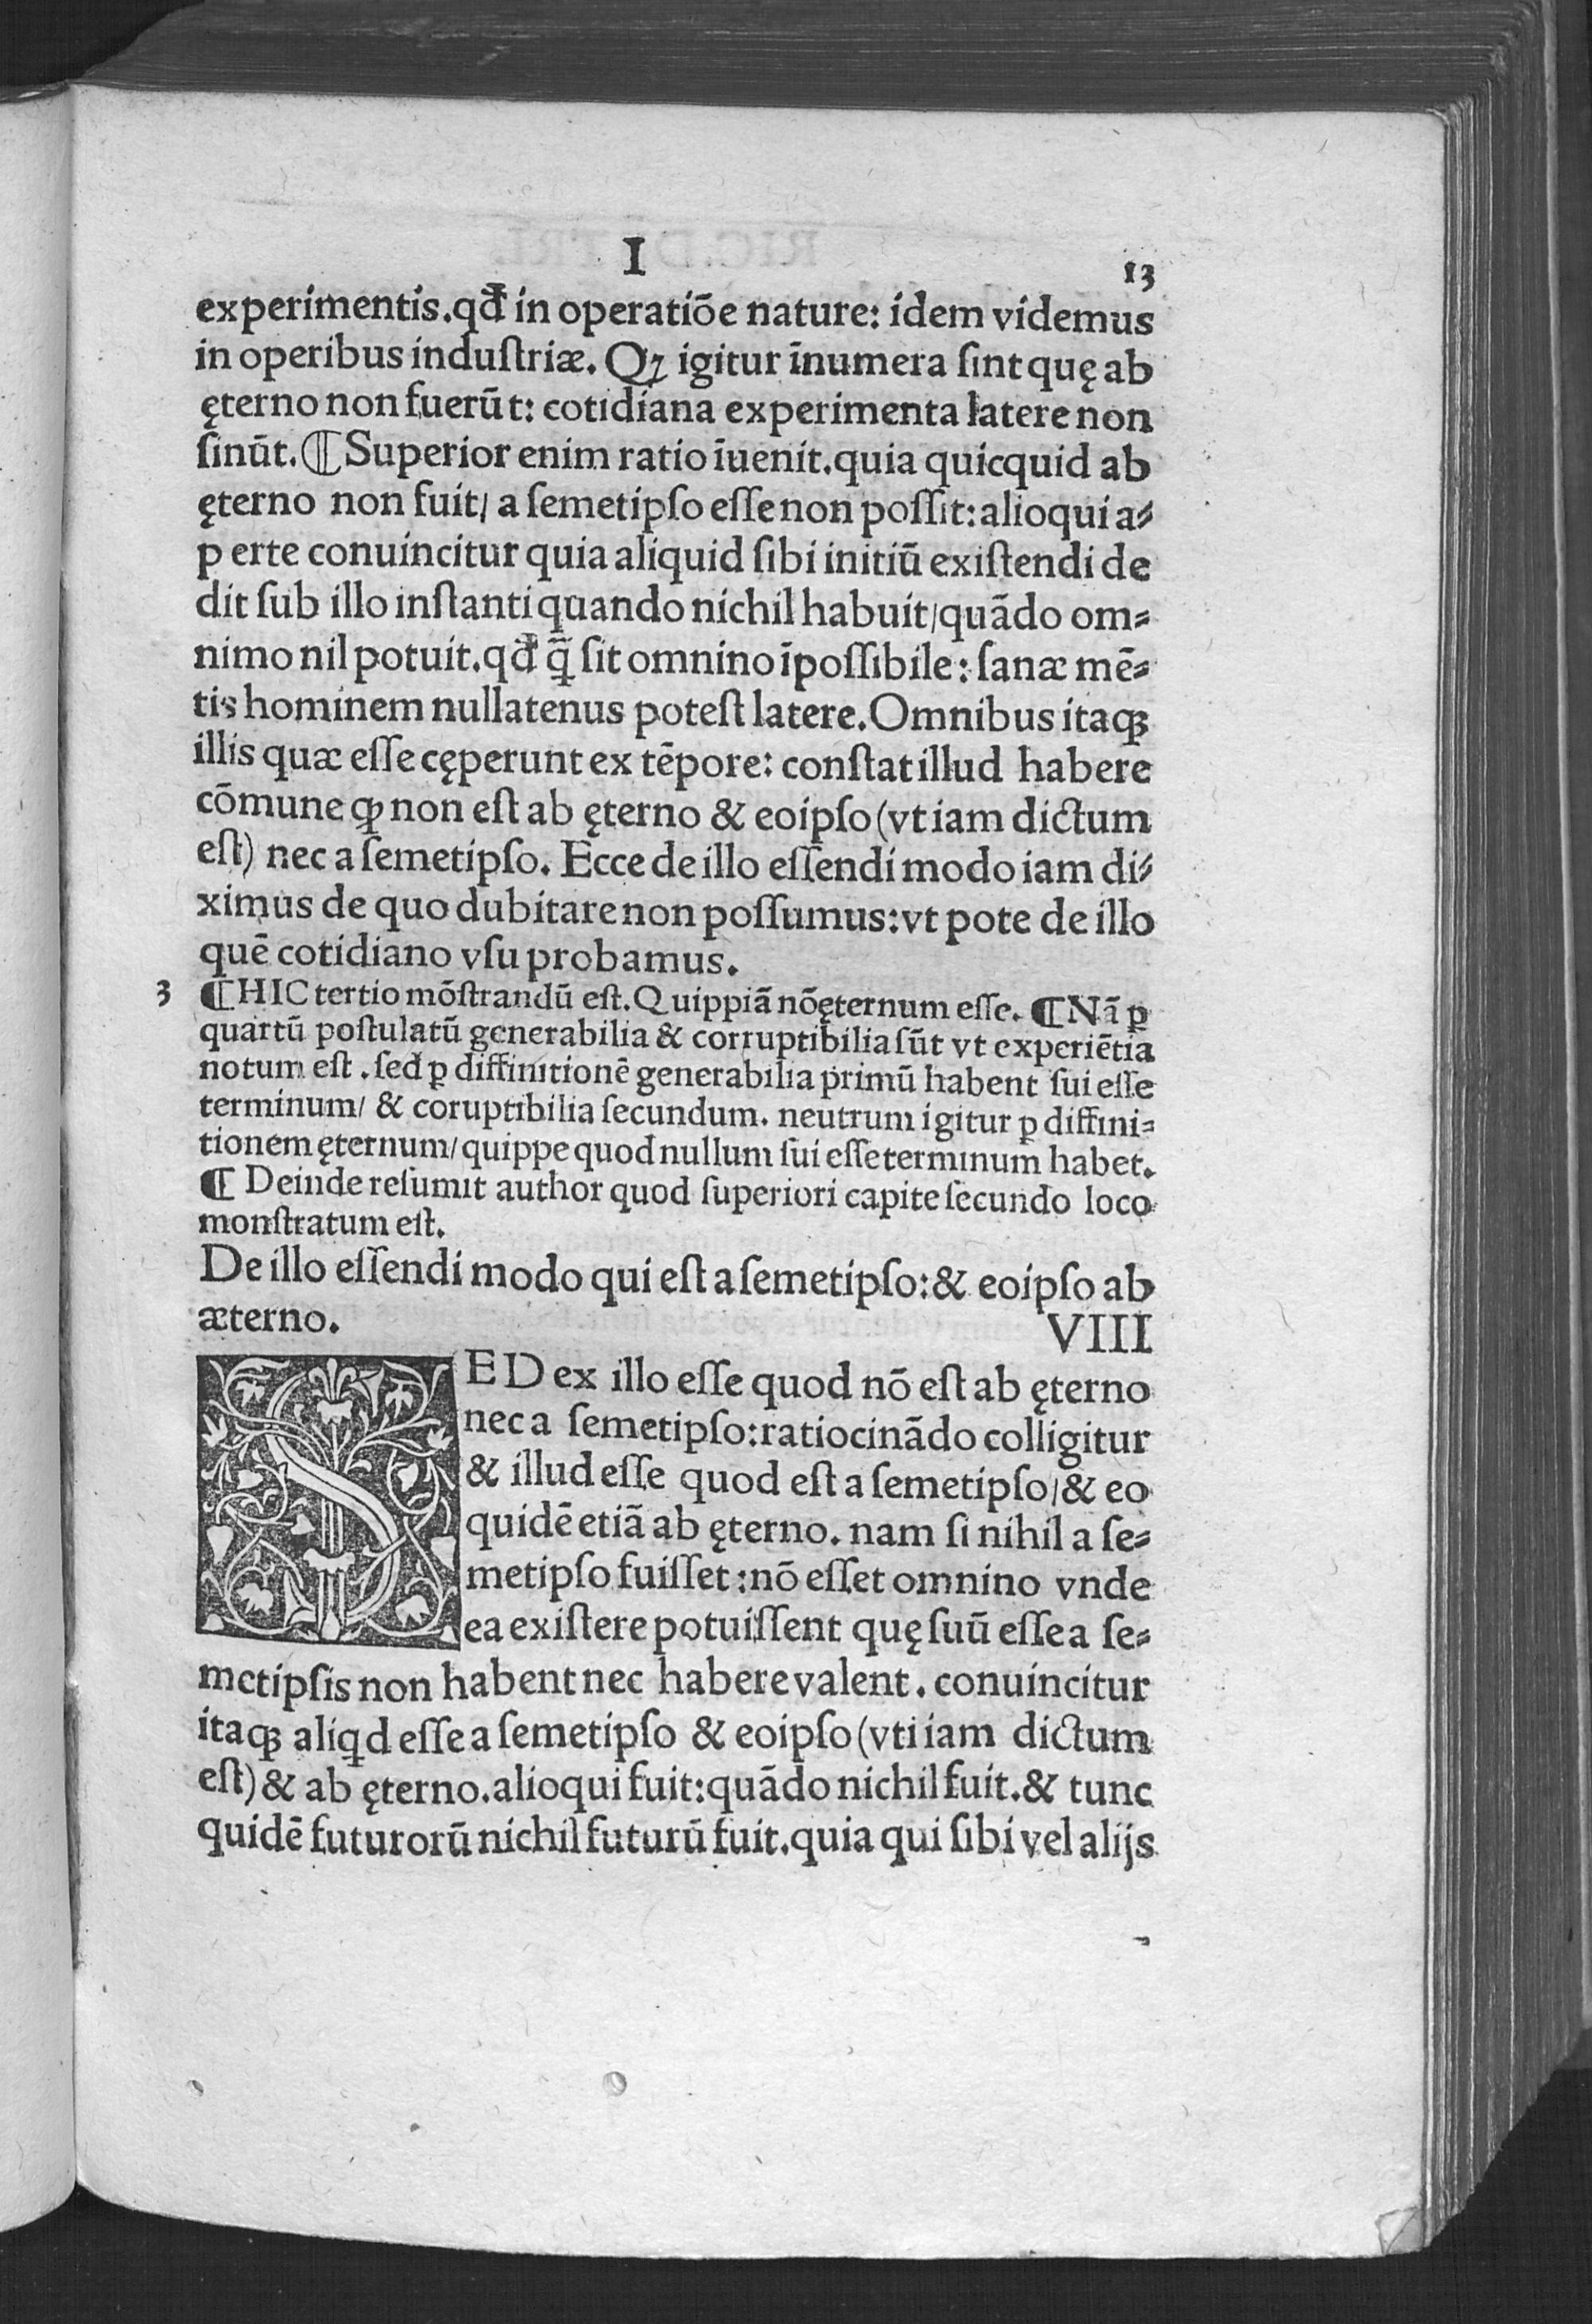 I
13
experimentis.qđ in operatiōe nature: idem videmus
in operibus industriæ. Qꝫ igitur īnumera sint quę ab
ęterno non fuerūt: cotidiana experimenta latere non
sinūt. ¶ Superior enim ratio īuenit.quia quicquid ab
ęterno non fuit/ a semetipso esse non possit: alioqui a⸗
p erte conuincitur quia aliquid sibi initiū existendi de
dit sub illo instanti quando nichil habuit/quādo om⸗
nimo nil potuit.qđ q̄̃ sit omnino īpossibile: sanæ mē⸗
tis hominem nullatenus potest latere. Omnibus itaqꝫ
illis quæ esse cęperunt ex tēpore: constat illud habere
cōmune ꝙ non est ab ęterno & eoipso (vt iam dictum
est) nec a semetipso. Ecce de illo essendi modo iam di⸗
ximus de quo dubitare non possumus: vt pote de illo
quē cotidiano vsu probamus.
3 ¶ HIC tertio mōstrandū est. Quippiā nōęternum esse. ¶ Nā ꝑ
quartū postulatū generabilia & corruptibilia sūt vt experiētia
notum est . sed ꝑ diffinitionē generabilia primū habent sui esse
terminum/ & coruptibilia secundum. neutrum igitur ꝑ diffini⸗
tionem ęternum/ quippe quod nullum sui esse terminum habet.
¶ Deinde resumit author quod superiori capite secundo loco
monstratum est.
De illo essendi modo qui est a semetipso: & eoipso ab
æterno. VIII
SED ex illo esse quod nō est ab ęterno
nec a semetipso: ratiocinādo colligitur
& illud esse quod est a semetipso/ & eo
quidē etiā ab ęterno. nam si nihil a se⸗
metipso fuisset: nō esset omnino vnde
ea existere potuissent quę suū esse a se⸗
metipsis non habent nec habere valent. conuincitur
itaqꝫ aliꝗd esse a semetipso & eoipso (vti iam dictum
est) & ab ęterno. alioqui fuit: quādo nichil fuit. & tunc
quidē futurorū nichil futurū fuit. quia qui sibi vel alijs